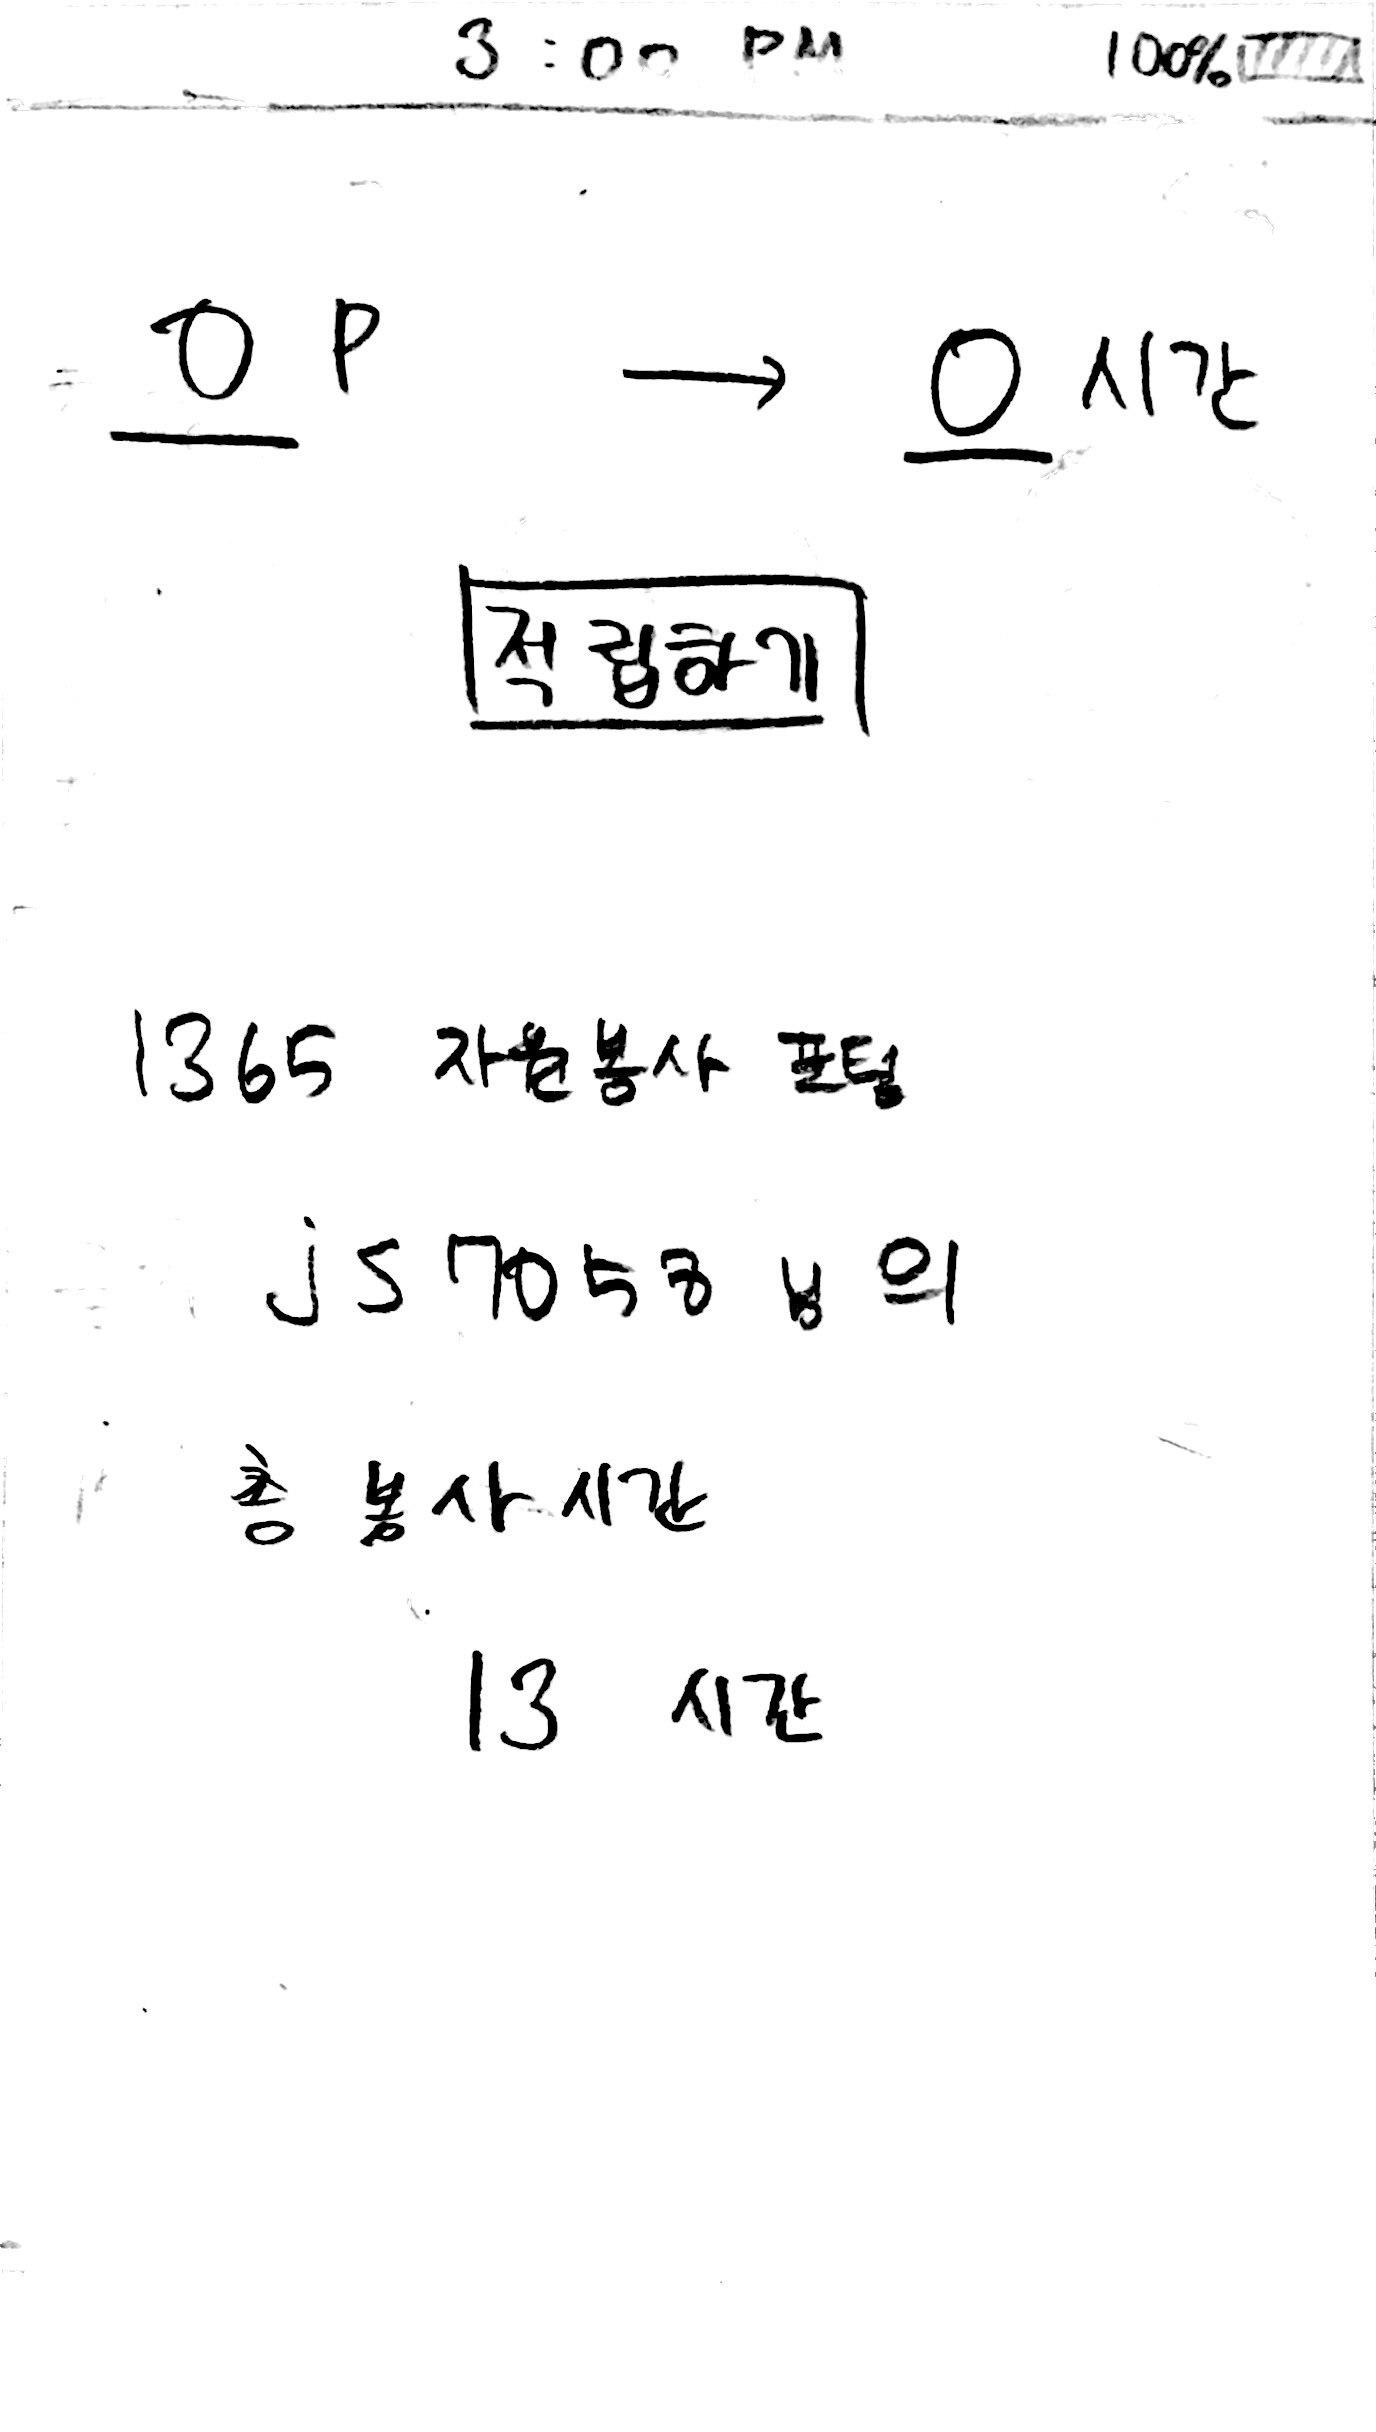 3:00 PM 100%
0 P → 0 시간
적립하기
1365 자원봉사 포털
js7053 님의
총 봉사시간
13 시간